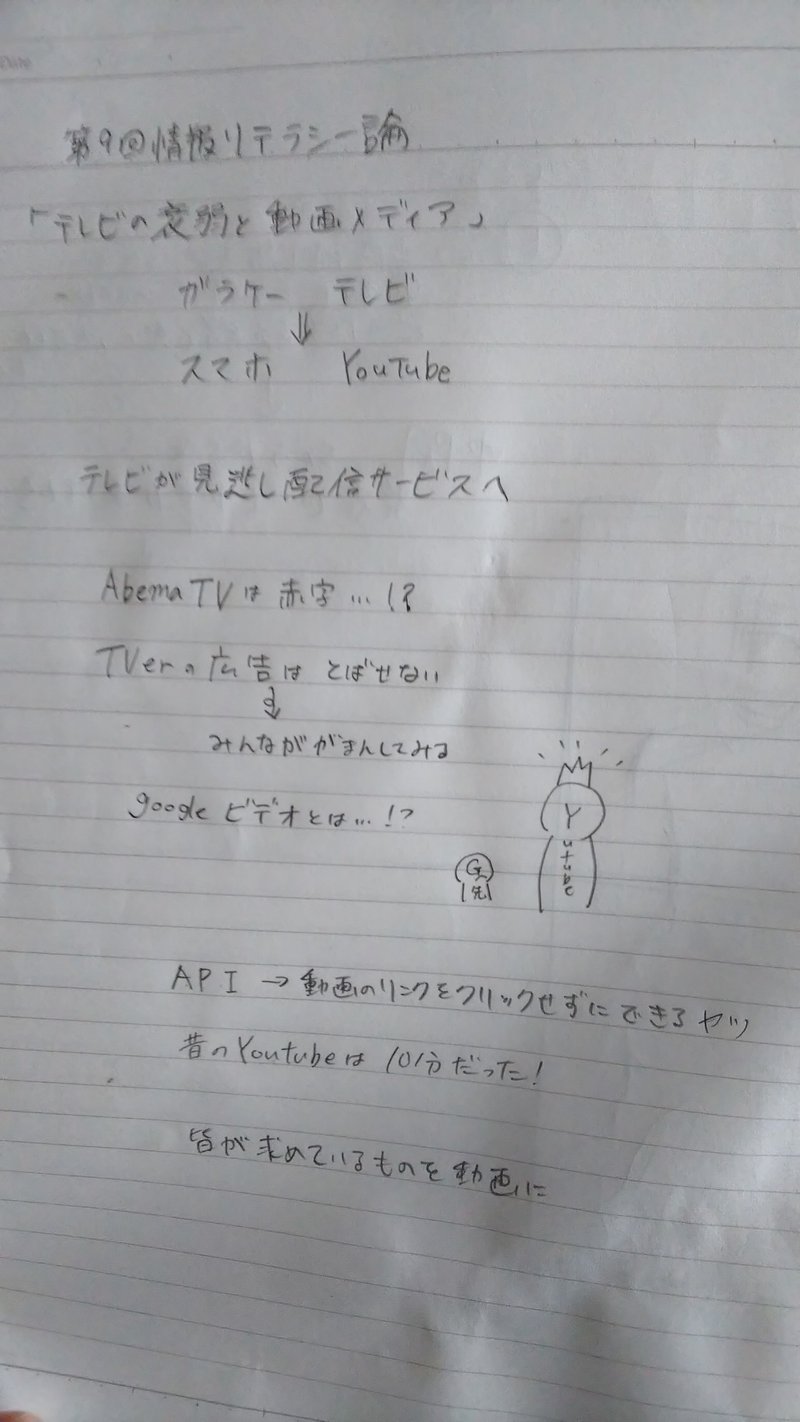 Date
第9回情報リテラシー論
「テレビの衰弱と動画メディア」
ガラケー テレビ
⇓
スマホ YouTube
テレビが見逃し配信サービスへ
AbemaTVは赤字…!?
TVerの広告はとばせない
↓
みんながががまんしてみる
googleビデオとは…!?
Y
utube
G
先
API→動画のリンクをクリックせずにできるヤツ
昔のYoutubeは10分だった!
皆が求めているものを動画に